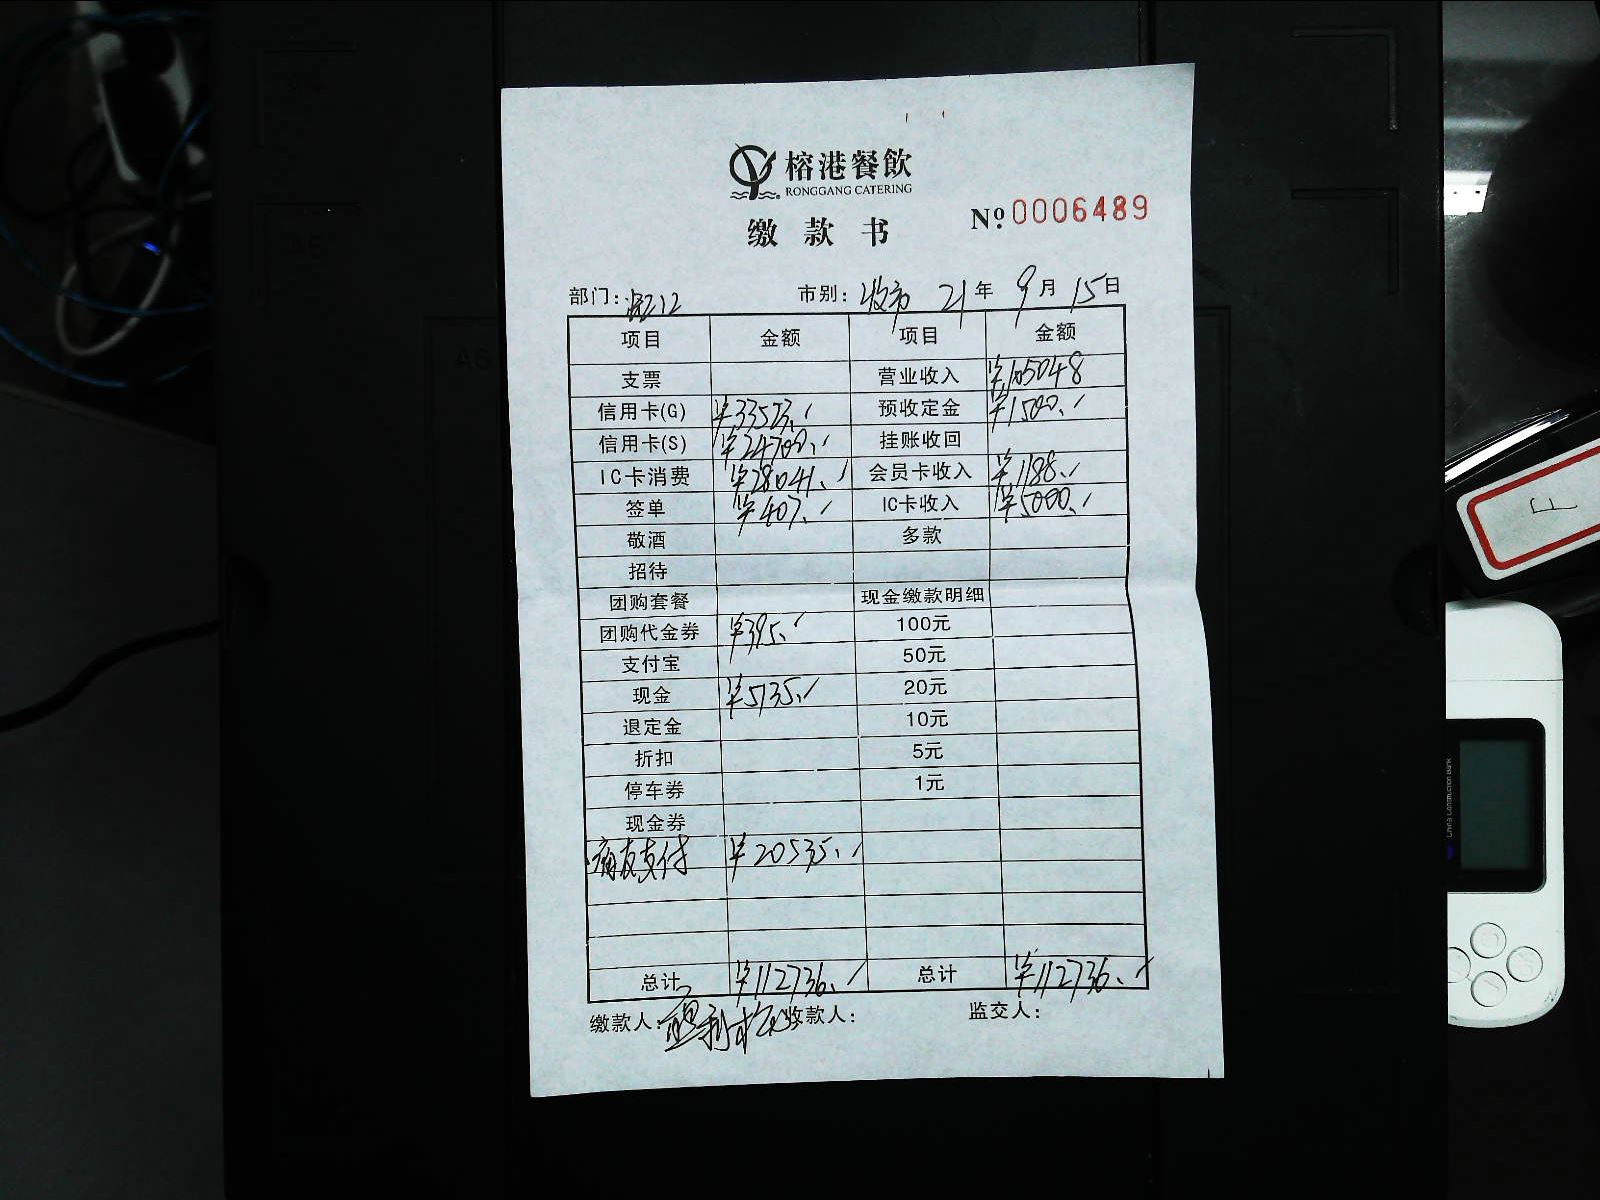 榕港餐飲
RONGGANG CATERING
缴款书
Nº 0006489
部门: 市别: 收市 21年 9月 15日
项目 金额 项目 金额
支票 营业收入 ¥105048
信用卡(G) ¥33523. 预收定金 ¥1500.
信用卡(S) ¥24700. 挂账收回
IC卡消费 ¥28041. 会员卡收入 ¥1188.
签单 ¥407. IC卡收入 ¥5000.
敬酒 多款
招待
团购套餐 现金缴款明细
团购代金券 ¥395. 100元
支付宝 50元
现金 ¥5135. 20元
退定金 10元
折扣 5元
停车券 1元
现金券
支付 ¥20535.
总计 ¥112736. 总计 ¥112736.
缴款人: 收款人: 监交人:
A6
A5
China Construction Bank